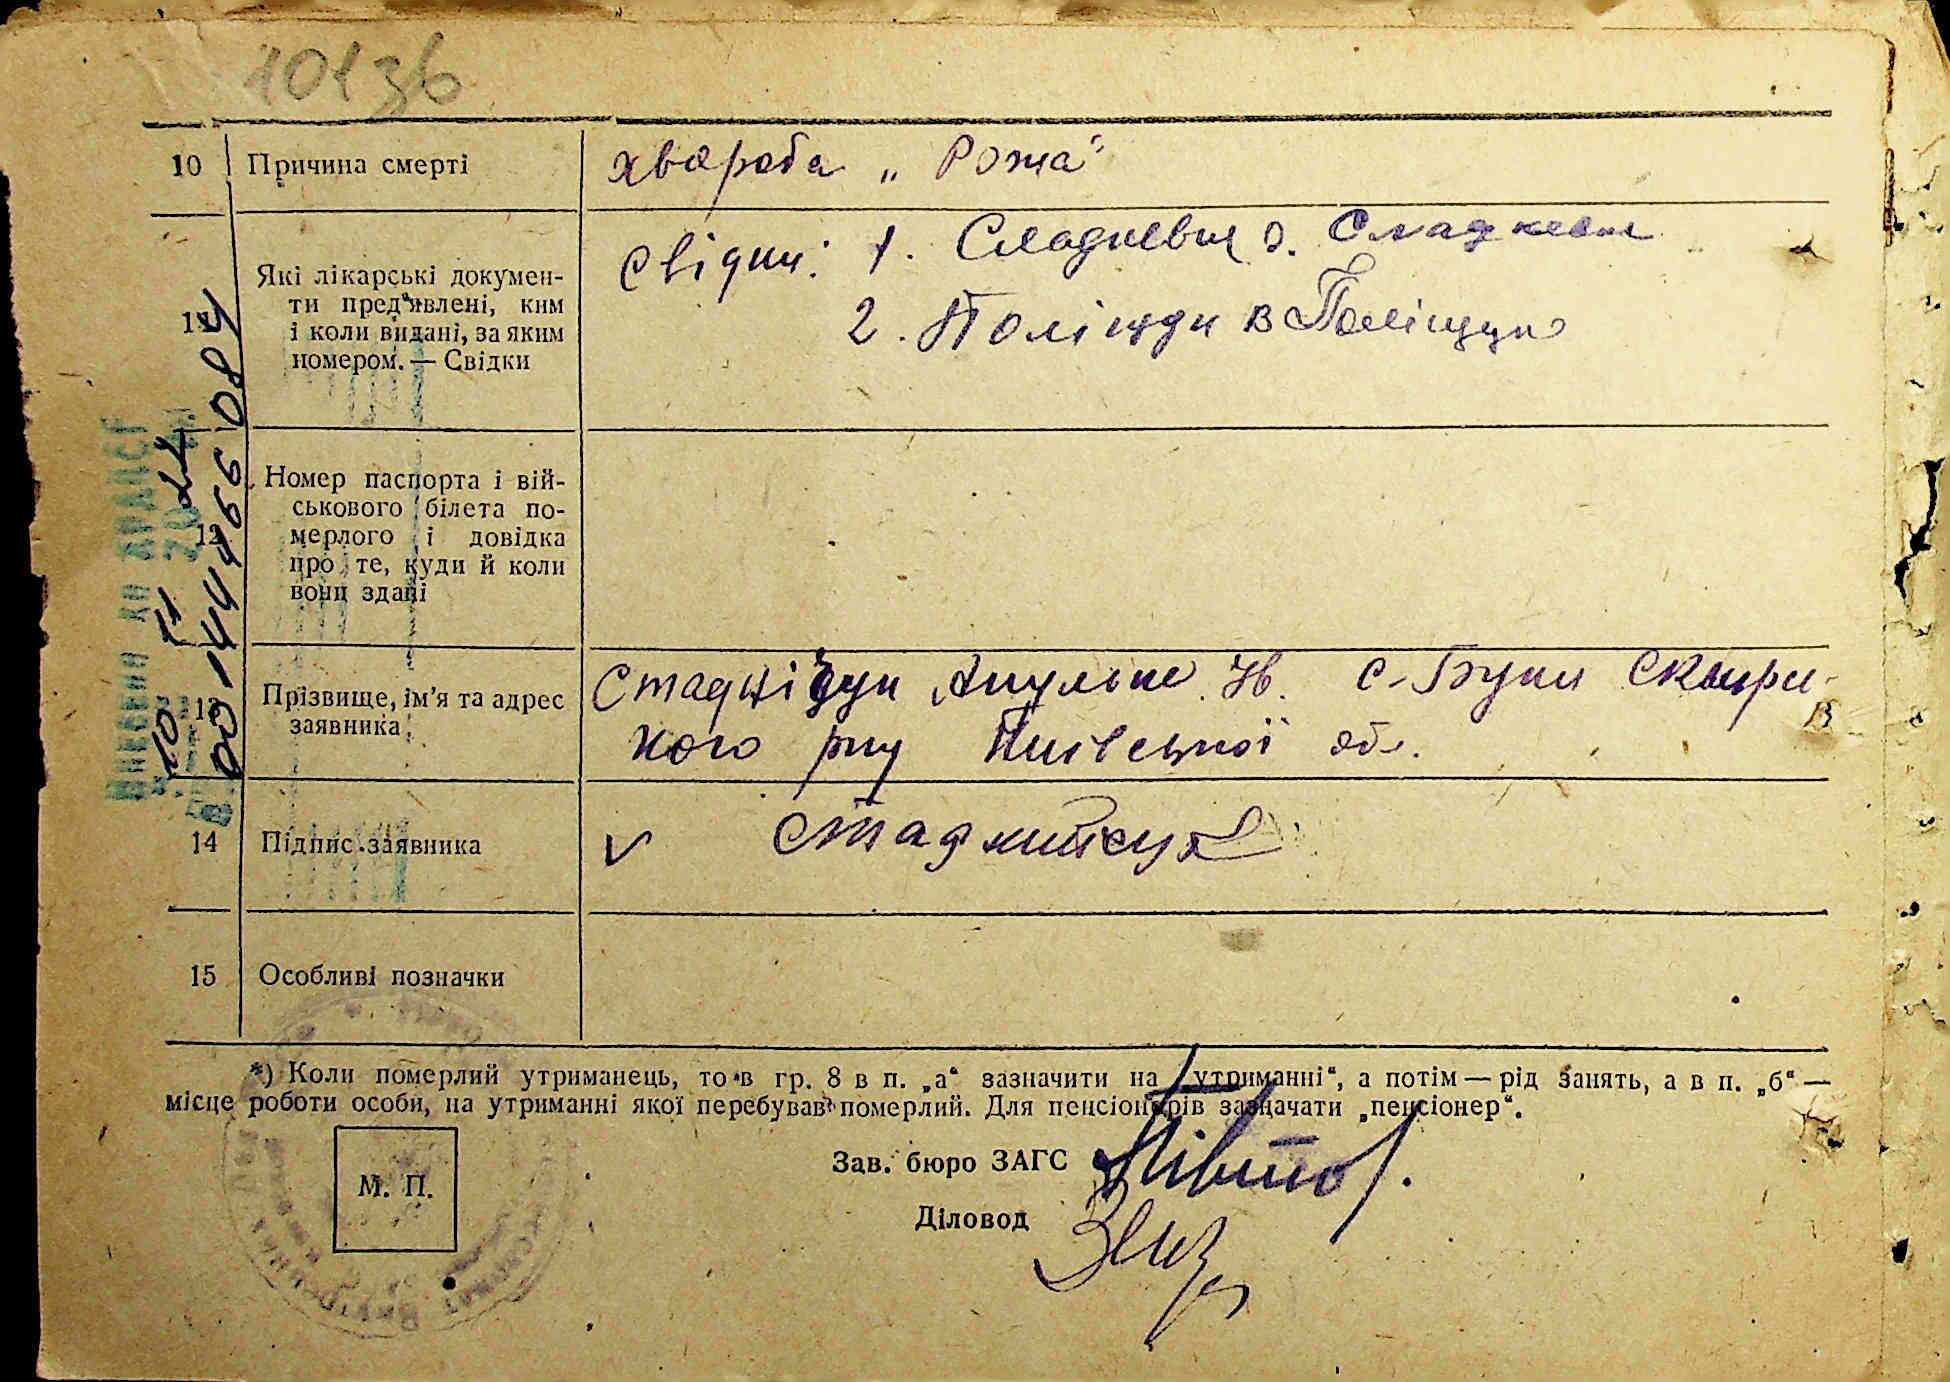 101зв
10 Причина смерті
хвороба „Рожа"
11 Які лікарські докумен-
ти пред'явлені, ким
і коли видані, за яким
номером. — Свідки
свідки: 1. Сладкевич О. Сладкевич
2. Поліщук В Поліщук
12 Номер паспорта і вій-
ськового білета по-
мерлого і довідка
про те, куди й коли
вони здані
13 Прізвище, ім'я та адрес
заявника
Стаднійчук с. Буки Сквирсь-
кого р-ну Київської обл.
14 Підпис заявника
V Стаднийчук
15 Особливі позначки
*) Коли померлий утриманець, то в гр. 8 в п. „а“ зазначити на „утриманні“, а потім — рід занять, а в п. „б“ —
місце роботи особи, на утриманні якої перебував померлий. Для пенсіонерів зазначати „пенсіонер“.
М. П.
Зав. бюро ЗАГС
Діловод
10 11 2022
00144456084